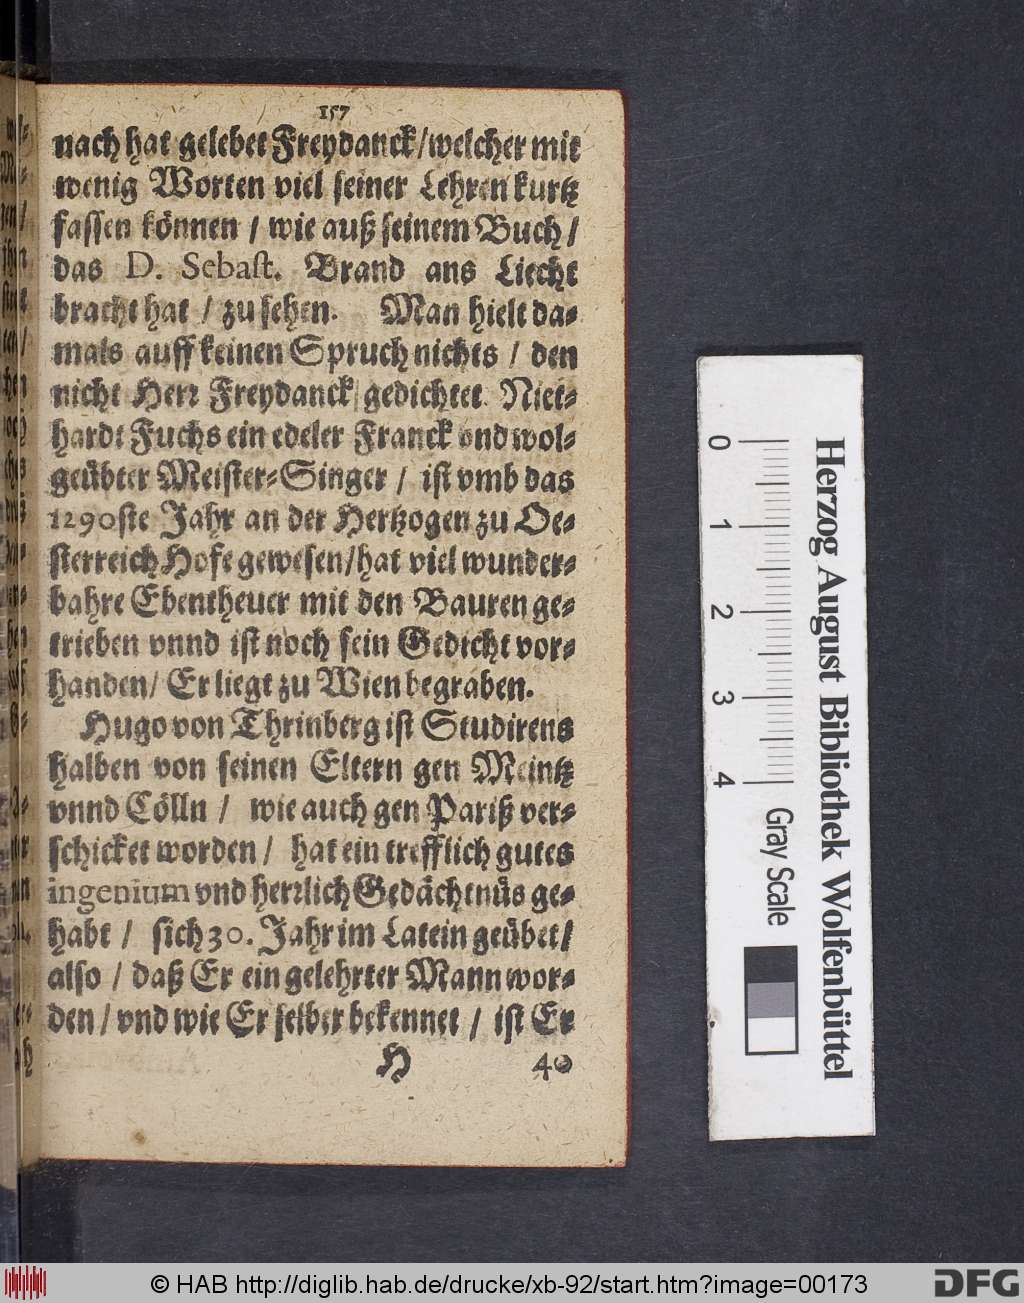 157
nach hat gelebet Freydanck/welcher mit
wenig Worten viel seiner Lehren kurtz
fassen können / wie auß seinem Buch /
das D. Sebast. Brand ans Liecht
bracht hat / zu sehen. Man hielt da-
mals auff keinen Spruch nichts / den
nicht Herr Freydanck gedichtet. Niet-
hardt Fuchs ein edeler Franck vnd wol-
geübter Meister-Singer / ist vmb das
1290ste Jahr an der Hertzogen zu Oe-
sterreich Hofe gewesen/hat viel wunder-
bahre Ebentheuer mit den Bauren ge-
trieben vnnd ist noch sein Gedicht vor-
handen/ Er liegt zu Wien begraben.
Hugo von Thrinberg ist Studirens
halben von seinen Eltern gen Meintz
vnnd Cölln / wie auch gen Pariß ver-
schicket worden / hat ein trefflich gutes
ingenium vnd herrlich Gedächtnüs ge-
habt / sich 30. Jahr im Latein geübet/
also / daß Er ein gelehrter Mann wor-
den / vnd wie Er selber bekennet / ist Er
H 40
Herzog August Bibliothek Wolfenbüttel
0 1 2 3 4
Gray Scale
© HAB http://diglib.hab.de/drucke/xb-92/start.htm?image=00173
DFG